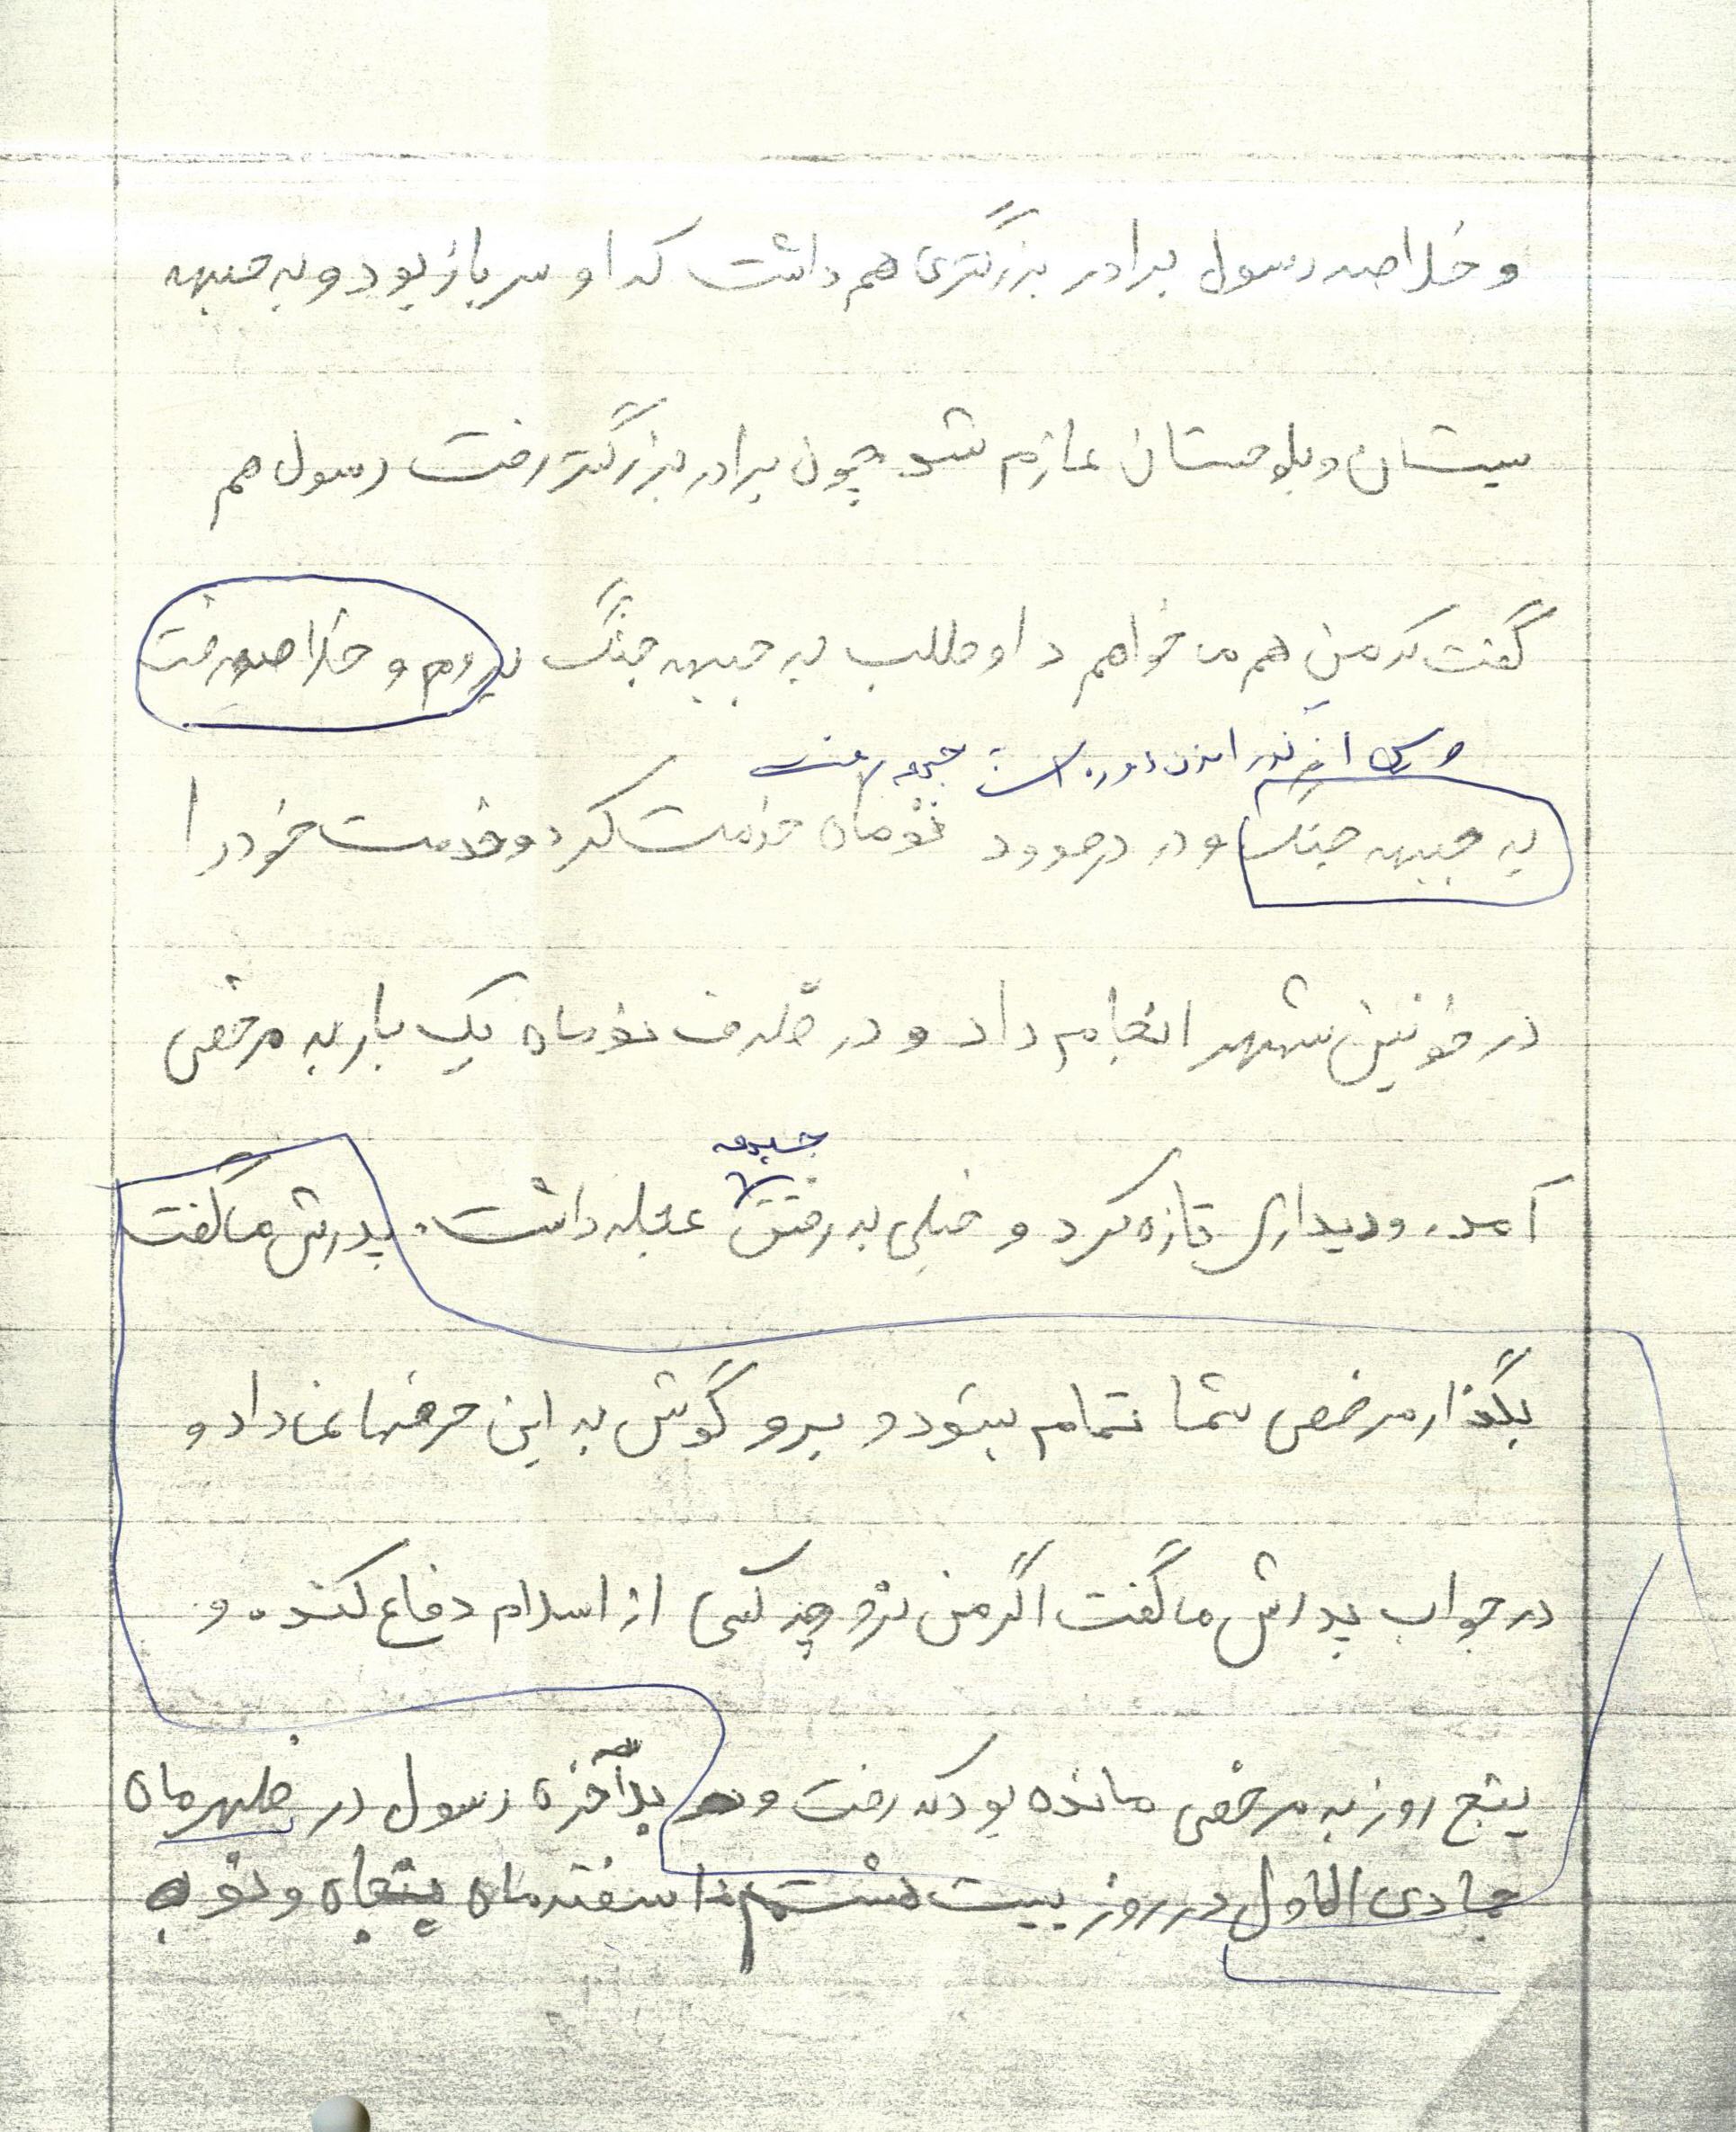 و خلاصه رسول برادر بزرگتری هم داشت که او سرباز بود و به جبهه
سیستان و بلوچستان عازم شد چون برادر بزرگتر رفت رسول هم
گفت که من هم می خواهم داوطلب به جبهه جنگ بروم و خلاصه رفت
و پس از دوره است جبهه رفت
به جبهه جنگ و در درحدود نوماه خدمت کرد و خدمت خود را
در خونین شهر انجام داد و در ظرف نوماه یک بار به مرخصی
جبهه
آمد. و دیداری تازه کرد و خیلی به رفتن عجله داشت. پدرش می گفت
بگذار مرخصی شما تمام بشود و برو گوش به این حرفها نمی داد و
در جواب پدرش می گفت اگر من نرو چه کسی از اسلام دفاع کند. و
پنج روز به مرخصی مانده بود که رفت و بلآخره رسول در ظهر ماه
جمادی الاول در روز بیست هشتم اسفند ماه پنجاه و نو به